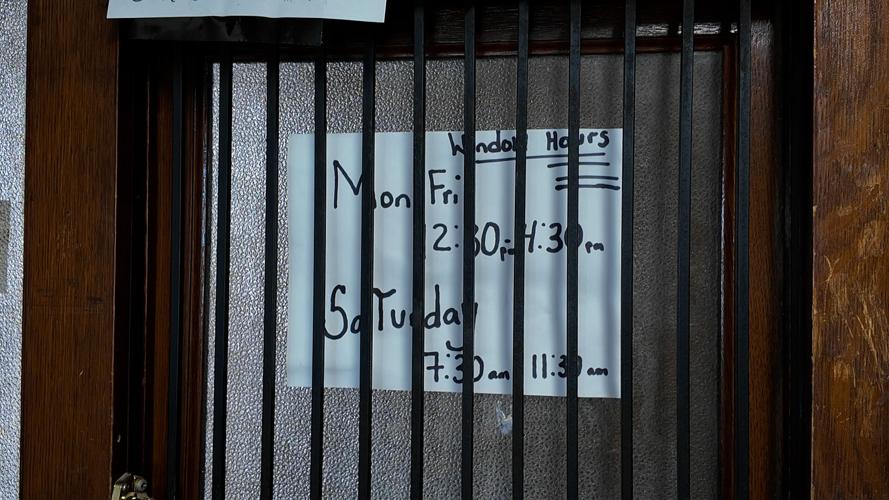 Window Hours
Mon Fri
2:30pm-4:30pm
Saturday
7:30am 11:30am